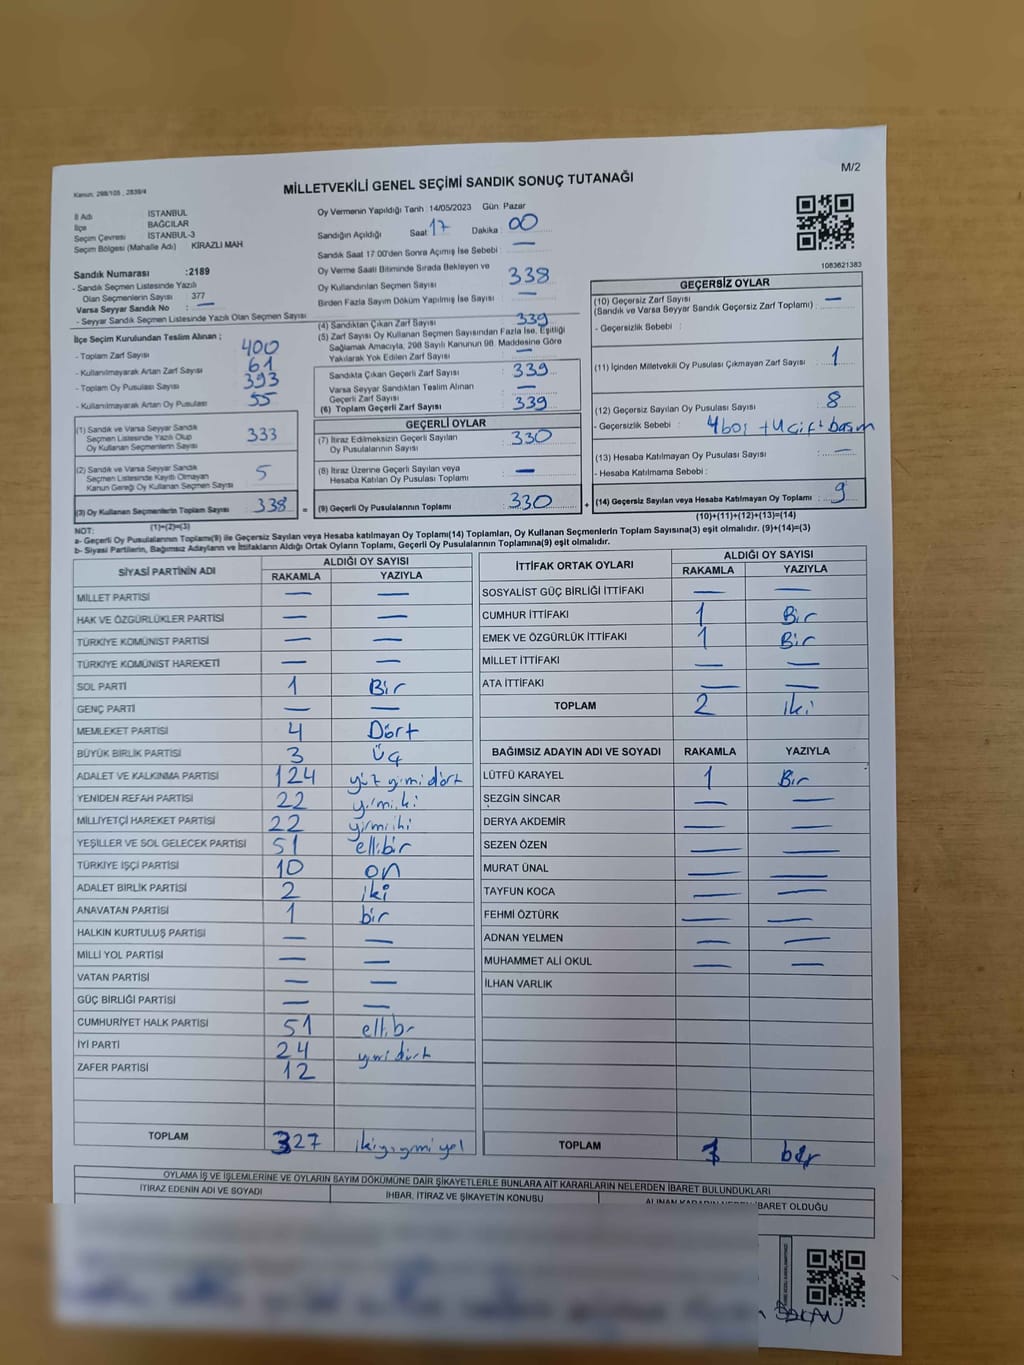 Kanun: 298/105 ; 2839/4
MİLLETVEKİLİ GENEL SEÇİMİ SANDIK SONUÇ TUTANAĞI
M/2
İl Adı İSTANBUL
İlçe BAĞCILAR
Seçim Çevresi İSTANBUL-3
Seçim Bölgesi (Mahalle Adı) KİRAZLI MAH
Sandık Numarası :2189
- Sandık Seçmen Listesinde Yazılı
Olan Seçmenlerin Sayısı 377
Varsa Seyyar Sandık No : —
- Seyyar Sandık Seçmen Listesinde Yazılı Olan Seçmen Sayısı
Oy Vermenin Yapıldığı Tarih :14/05/2023 Gün: Pazar
Sandığın Açıldığı Saat 17 Dakika : 00
Sandık Saat 17:00'den Sonra Açılmış İse Sebebi : —
Oy Verme Saati Bitiminde Sırada Bekleyen ve
Oy Kullandırılan Seçmen Sayısı : 338
Birden Fazla Sayım Döküm Yapılmış İse Sayısı : —
1083621383
İlçe Seçim Kurulundan Teslim Alınan ;
- Toplam Zarf Sayısı 400
- Kullanılmayarak Artan Zarf Sayısı 61
- Toplam Oy Pusulası Sayısı 393
- Kullanılmayarak Artan Oy Pusulası 55
(1) Sandık ve Varsa Seyyar Sandık
Seçmen Listesinde Yazılı Olup
Oy Kullanan Seçmenlerin Sayısı 333
(2) Sandık ve Varsa Seyyar Sandık
Seçmen Listesinde Kayıtlı Olmayan
Kanun Gereği Oy Kullanan Seçmen Sayısı 5
(3) Oy Kullanan Seçmenlerin Toplam Sayısı 338
(1)+(2)=(3)
(4) Sandıktan Çıkan Zarf Sayısı : 339
(5) Zarf Sayısı Oy Kullanan Seçmen Sayısından Fazla İse, Eşitliği
Sağlamak Amacıyla, 298 Sayılı Kanunun 98. Maddesine Göre
Yakılarak Yok Edilen Zarf Sayısı : —
Sandıkta Çıkan Geçerli Zarf Sayısı : 339
Varsa Seyyar Sandıktan Teslim Alınan
Geçerli Zarf Sayısı : —
(6) Toplam Geçerli Zarf Sayısı : 339
GEÇERLİ OYLAR
(7) İtiraz Edilmeksizin Geçerli Sayılan
Oy Pusulasının Sayısı : 330
(8) İtiraz Üzerine Geçerli Sayılan veya
Hesaba Katılan Oy Pusulası Toplamı : —
= (9) Geçerli Oy Pusulalarının Toplamı : 330 +
GEÇERSİZ OYLAR
(10) Geçersiz Zarf Sayısı
(Sandık ve Varsa Seyyar Sandık Geçersiz Zarf Toplamı) : —
- Geçersizlik Sebebi :
(11) İçinden Milletvekili Oy Pusulası Çıkmayan Zarf Sayısı : 1
(12) Geçersiz Sayılan Oy Pusulası Sayısı : 8
- Geçersizlik Sebebi : 4 boş + 4 çift basım
(13) Hesaba Katılmayan Oy Pusulası Sayısı : —
- Hesaba Katılmama Sebebi :
(14) Geçersiz Sayılan veya Hesaba Katılmayan Oy Toplamı : 9
(10)+(11)+(12)+(13)=(14)
NOT:
a- Geçerli Oy Pusulalarının Toplamı(9) ile Geçersiz Sayılan veya Hesaba katılmayan Oy Toplamı(14) Toplamları, Oy Kullanan Seçmenlerin Toplam Sayısına(3) eşit olmalıdır. (9)+(14)=(3)
b- Siyasi Partilerin, Bağımsız Adayların ve İttifakların Aldığı Ortak Oyların Toplamı, Geçerli Oy Pusulalarının Toplamına(9) eşit olmalıdır.
SİYASİ PARTİNİN ADI ALDIĞI OY SAYISI
RAKAMLA YAZIYLA
MİLLET PARTİSİ — —
HAK VE ÖZGÜRLÜKLER PARTİSİ — —
TÜRKİYE KOMÜNİST PARTİSİ — —
TÜRKİYE KOMÜNİST HAREKETİ — —
SOL PARTİ 1 Bir
GENÇ PARTİ — —
MEMLEKET PARTİSİ 4 Dört
BÜYÜK BİRLİK PARTİSİ 3 Üç
ADALET VE KALKINMA PARTİSİ 124 yüz yirmi dört
YENİDEN REFAH PARTİSİ 22 yirmi iki
MİLLİYETÇİ HAREKET PARTİSİ 22 yirmi iki
YEŞİLLER VE SOL GELECEK PARTİSİ 51 elli bir
TÜRKİYE İŞÇİ PARTİSİ 10 on
ADALET BİRLİK PARTİSİ 2 iki
ANAVATAN PARTİSİ 1 bir
HALKIN KURTULUŞ PARTİSİ — —
MİLLİ YOL PARTİSİ — —
VATAN PARTİSİ — —
GÜÇ BİRLİĞİ PARTİSİ — —
CUMHURİYET HALK PARTİSİ 51 elli br
İYİ PARTİ 24 yirmi dört
ZAFER PARTİSİ 12
TOPLAM 327
İTTİFAK ORTAK OYLARI ALDIĞI OY SAYISI
RAKAMLA YAZIYLA
SOSYALİST GÜÇ BİRLİĞİ İTTİFAKI — —
CUMHUR İTTİFAKI 1 Bir
EMEK VE ÖZGÜRLÜK İTTİFAKI 1 Bir
MİLLET İTTİFAKI — —
ATA İTTİFAKI — —
TOPLAM 2 iki
BAĞIMSIZ ADAYIN ADI VE SOYADI RAKAMLA YAZIYLA
LÜTFÜ KARAYEL 1 Bir
SEZGİN SİNCAR — —
DERYA AKDEMİR — —
SEZEN ÖZEN — —
MURAT ÜNAL — —
TAYFUN KOCA — —
FEHMİ ÖZTÜRK — —
ADNAN YELMEN — —
MUHAMMET ALİ OKUL — —
İLHAN VARLIK
TOPLAM 1 bir
OYLAMA İŞ VE İŞLEMLERİNE VE OYLARIN SAYIM DÖKÜMÜNE DAİR ŞİKAYETLERLE BUNLARA AİT KARARLARIN NELERDEN İBARET BULUNDUKLARI
İTİRAZ EDENİN ADI VE SOYADI İHBAR, İTİRAZ VE ŞİKAYETİN KONUSU ALINAN KARARIN NEDEN İBARET OLDUĞU